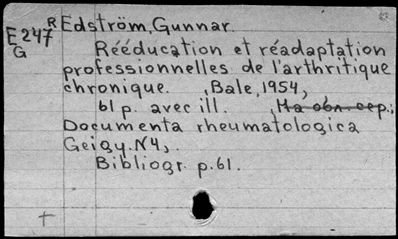 R Edström, Gunnar.
E 247
G
Rééducation et réadaptation
professionnelles de l'arthritique
chronique. , Bale, 1954,
61 p. avec ill. , На обл. сер.:
Documenta rheumatologica
Geigy. N4,.
Bibliogr. p.61.
+